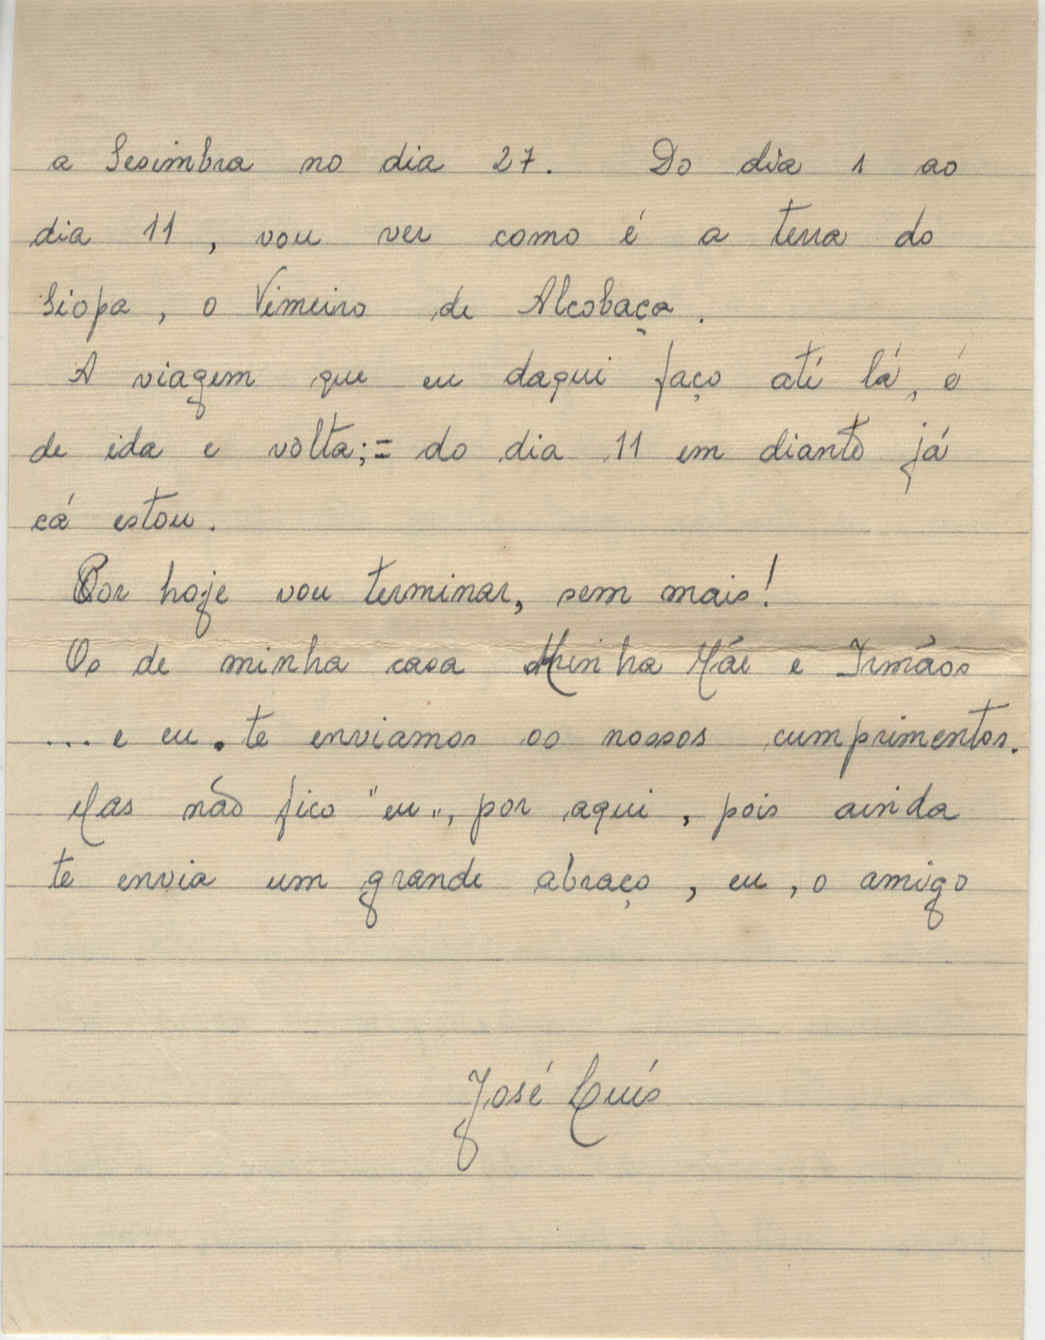 a Sesimbra no dia 27. Do dia 1 ao
dia 11, vou ver como é a terra do
Siopa, o Vimeiro de Alcobaça.
A viagem que eu daqui faço até lá, é
de ida e volta;= do dia 11 em diante já
cá estou.
Por hoje vou terminar, sem mais!
Os de minha casa Minha Mãe e Irmãos
... e eu. te enviamos os nossos cumprimentos.
Mas não fico "eu", por aqui, pois ainda
te envia um grande abraço, eu, o amigo
José Luís